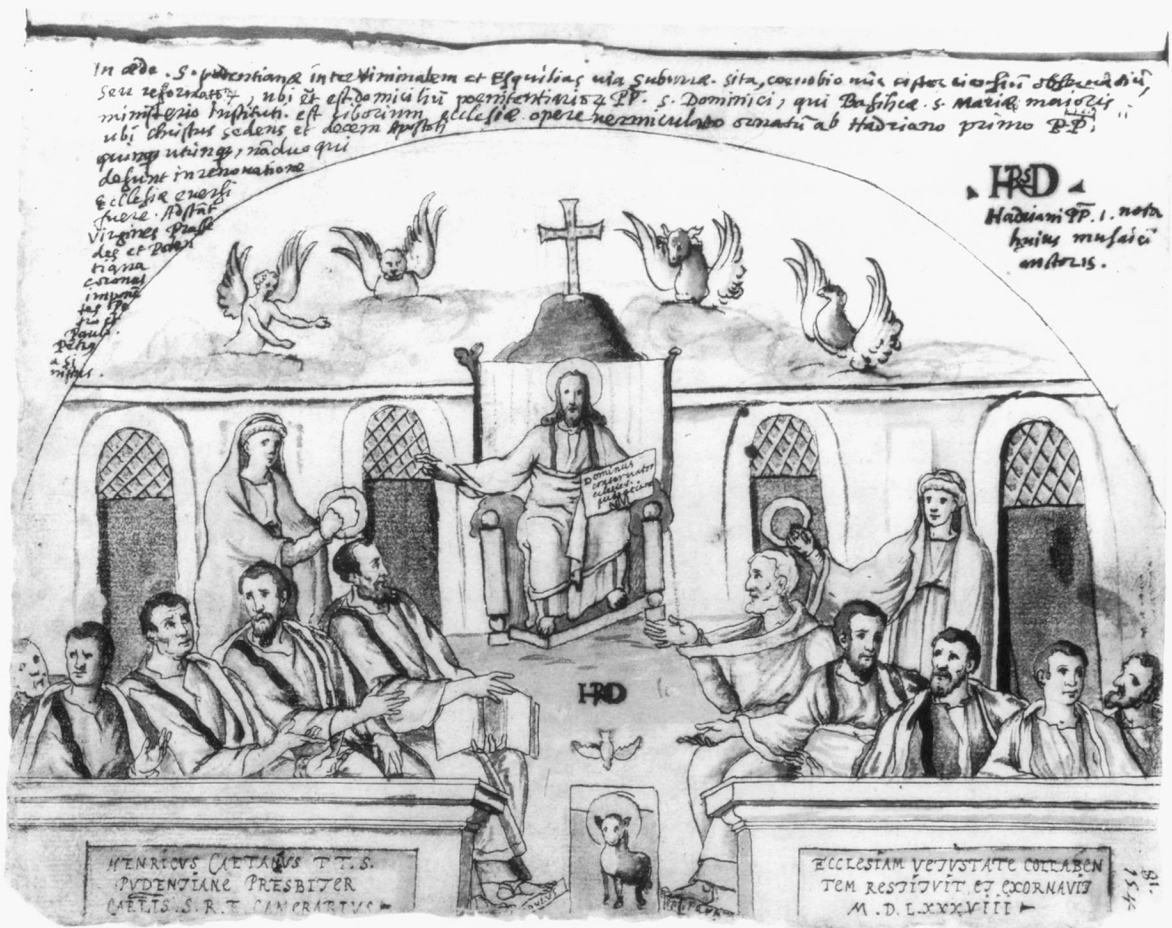 In æde . S. pudentianæ inter Viminalem et Esquilias uia Suburræ. sita, coenobio nūc cisterciensiū
seu reformator, ubi et est domiciliū poenitentiarior PP. S. Dominici, qui Basilicæ S. Mariæ maioris
ministerio Instituti. est ciborium ecclesiæ opere uermiculato ornatū ab Hadriano primo PP,
ubi christus sedens et decem Apostoli
quinq utinq, nā duo qui
desunt in renouatione
Ecclesiæ euersi
fuere. Adstāt
Virgines Prasse
des et Poten
tiana
coronas
imponē
tes Pe
tro et
Paulo.
Petrq
a si
nistris.
HRSD
Hadriani PP. I. nota
huius musaici
auctoris.
Dominus
conseruator
ecclesiæ
HRD
HENRICVS CAETANVS T T. S.
PVDENTIANE PRESBITER
CARLIS. S. R. E. CAMERARIVS
ECCLESIAM VETVSTATE COLLABEN
TEM RESTITVIT, ET EXORNAVIT
M. D. LXXXVIII